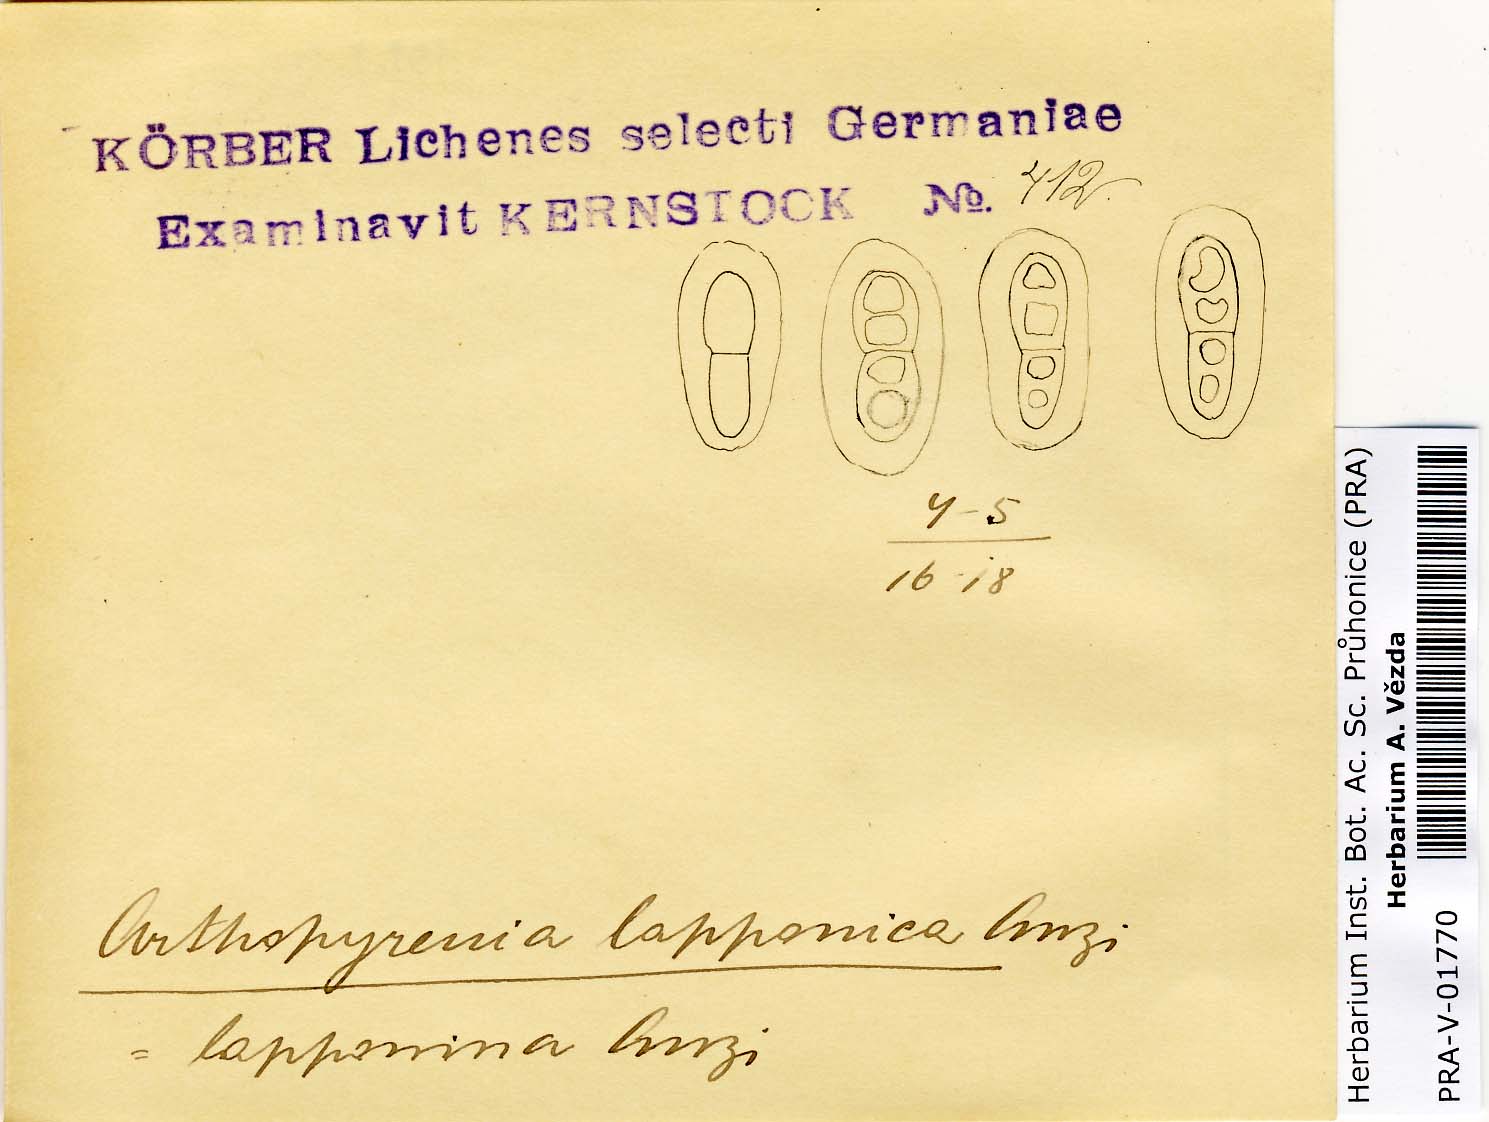 KÖRBER Lichenes selecti Germaniae
Examinavit KERNSTOCK No. 412.
4-5
16-18
Arthopyrenia lapponica Anzi
= lapponina Anzi
Herbarium Inst. Bot. Ac. Sc. Průhonice (PRA)
Herbarium A. Vězda
PRA-V-01770